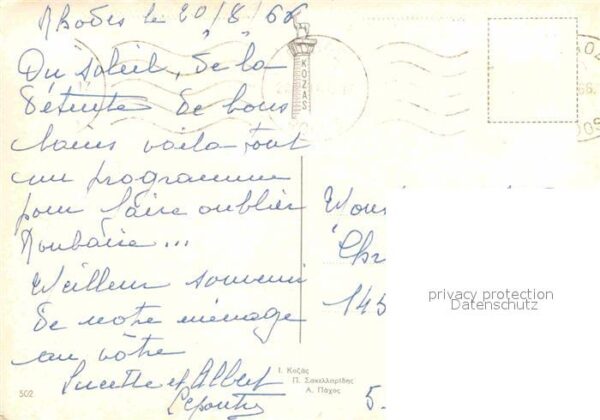 Rhodes le 20/8/66
Du soleil, de la
détente de bons
bains voila tout
un programme
pour faire oublier
Roubaix...
Meilleur souvenir
de notre ménage
au vôtre
Lucette et Albert
KOZAS
Chr
145
privacy protection
Datenschutz
Ι. Κοζάς
Π. Σακελλαρίδης
Α. Πάχος
502
5.